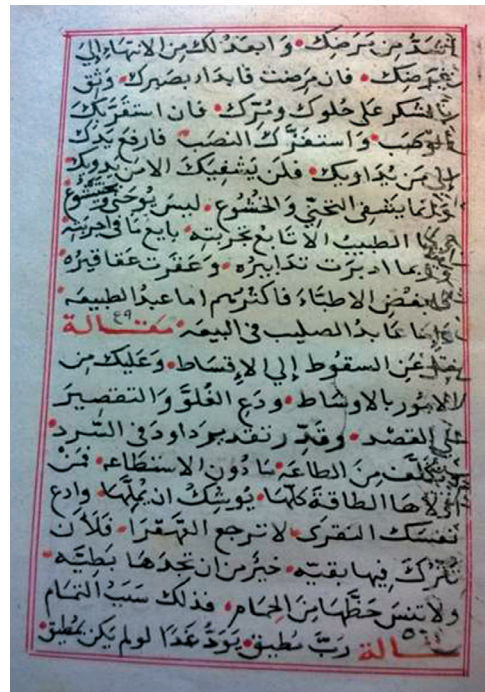 أشد من مرضك • وابعد لك من الانتهاء إلي
غرضك • فان مرضت فابدا بصبرك • وثق
بالشكر على حلوك ومرك • فان استفزتك
الوصب • واستفزك النصب فارفع يدك
إلى من يداويك • فلن يشفيك الا من يدويك
يشفي التخني والخشوع • ليس يوحى ويختشوع
الطبيب الا تابع تجربته • بايع ما في اجربته
وربما ادبرت تدابيره • وعقرت عقاقيره
بغض الاطباء فاكثرهم اما عبد الطبيعه
واما عابد الصليب في البيعه • ٤٩ مقالة
عن السقوط إلي الإقساط • وعليك من
الامور بالاوساط • ودع الغلو والتقصير
الي القصد • وقدر تقدير داود في السرد •
من الطاعة • ما دون الاستطاعه • فمن
اولاها الطاقة كلها • يوشك ان يملها • وادع
نفسك النقرى • لا ترجع القهقرا • فلأن
تتركك فيها بقيه • خير من ان تجدها بطيه •
ولا تنس حظها من الجمام • فذلك سبب التمام
٥٠ مقالة رب مطيق • يود غدا لو لم يكن بمطيق •